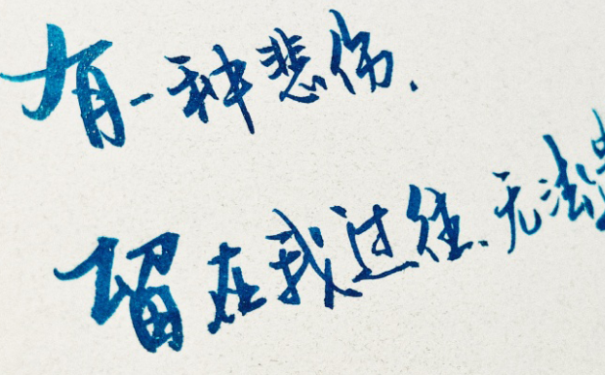 有一种悲伤.
留在我过往、无法